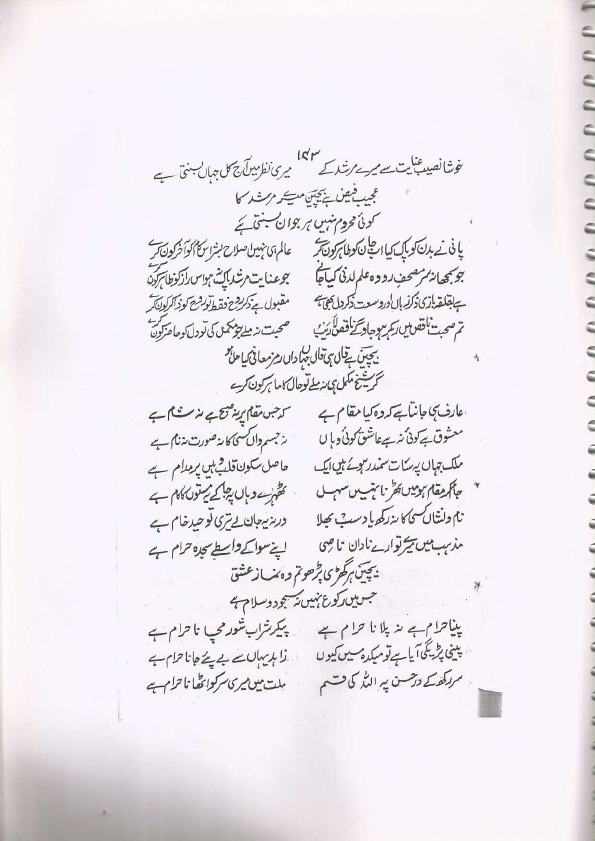 ۱۹۳
خوشا نصیب عنایت سے میرے مرشد کے میری نظر میں آج کل جہاں بسنتی ہے
عجیب فیض ہے بیچین میرے مرشد کا
کوئی محروم نہیں ہر جوان بسنتی ہے
پانی نے بدن کو پاک کیا اب جان کو طاہر کون کرے عالم ہی نہیں اصلاح بشر اس کام کو آخر کون کرے
جو سمجھا نہ سر مصحفِ رو وہ علم لدنی کیا جانے جو عنایت مرشد پاک نہ ہو اس راز کو ظاہر کون کرے
ہے لقلقہ بازی ذکر زباں اور وسعت ذکر دل بھی ہے مقبول ہے ذکر روح فقط تو روح کو ذاکر کون کرے
تم صحبت ناقص میں رہ کر ہو جاوگے ناقص لاریب صحبت نہ ملے جو مکمل کی تو دل کو حاضر کون کرے
بیچین ہے قال ہی قال یہاں داں رمز معانی کیا حل ہو
گر شیخ مکمل ہی نہ ملے تو حال کا ماہر کون کرے
عارف ہی جانتا ہے کہ وہ کیا مقام ہے کہ جس مقام پر نہ صبح ہے نہ شام ہے
معشوق ہے کوئی نہ ہے عاشق کوئی وہاں نہ جسم واں کسی کا نہ صورت نہ نام ہے
ملک جہاں پہ سات سمندر ہوئے ہیں ایک حاصل سکون قلب وہیں پر مدام ہے
جا کر مقام ہو میں ٹھہرنا نہیں سہل ٹھہرے وہاں پہ جا کے یہ مستوں کا کام ہے
نام و نشاں کسی کا نہ رکھ یاد سب بھلا ورنہ یہ جان لے تیری توحید خام ہے
مذہب میں میرے تو ارے نادان ناصح اپنے سوا کے واسطے سجدہ حرام ہے
بیچین ہر گھڑی پڑھو تم وہ نماز عشق
جس میں رکوع نہیں نہ سجود و سلام ہے
پینا حرام ہے نہ پلانا حرام ہے پی کر شراب شور مچانا حرام ہے
پینی پڑیگی آیا ہے تو میکدہ میں کیوں زاہد یہاں سے بے پئے جانا حرام ہے
سر رکھ کے در حسن پہ اللہ کی قسم ملت میں میری سر کو اٹھانا حرام ہے